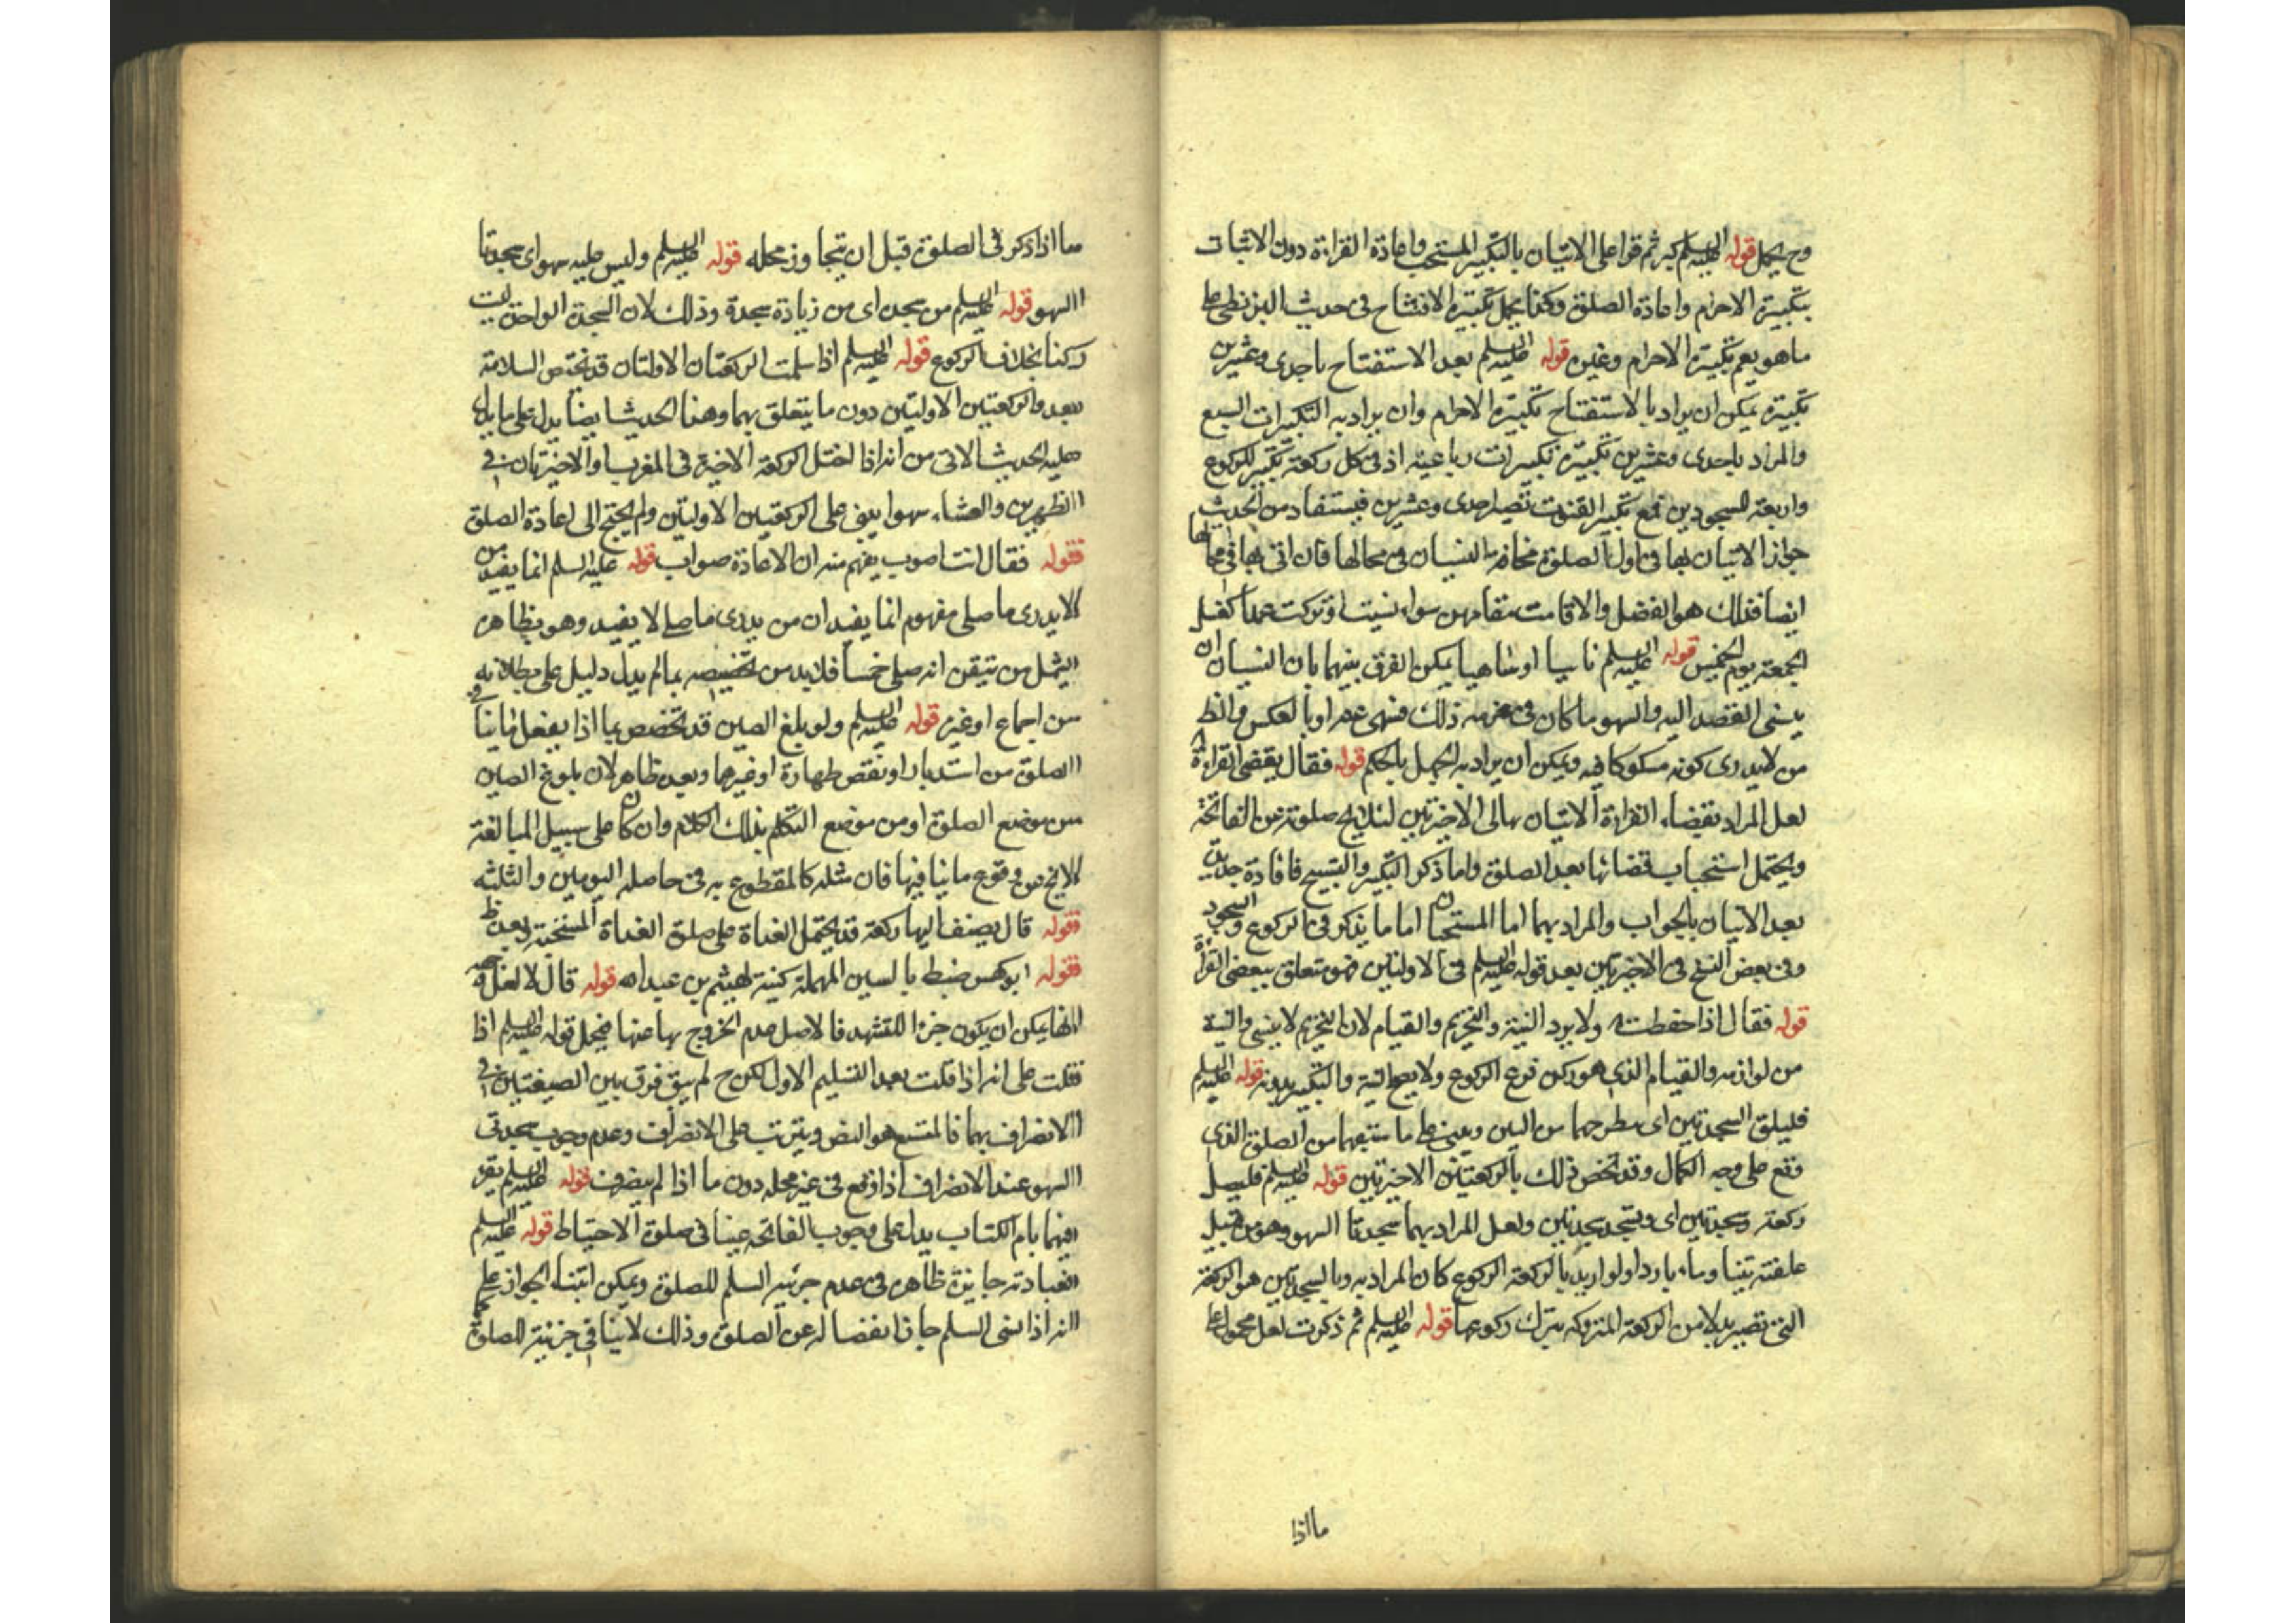 وح يحمل قوله عليه السلم كبر ثم قرا على الاتيان بالتكبير المستحب واعادة القراءة دون الاتيان
بتكبيرة الاحرام واعادة الصلوة وكذا يحمل تكبيرة الافتتاح فى حديث البزنطى على
ما هو يعم تكبيرة الاحرام وغيره قوله عليه السلم بعد الاستفتاح باحدى وعشرين
تكبيرة يمكن ان يراد بالاستفتاح تكبيرة الاحرام وان يراد به التكبيرات السبع
والمراد باحدى وعشرين تكبيرة تكبيرات رباعية اذ فى كل ركعة تكبير للركوع
واربعة للسجودين فمع تكبير القنوت تصير احدى وعشرين فيستفاد من الحديث
جواز الاتيان بها فى اول الصلوة مخافة النسيان فى محالها فان اتى بها فى محالها
ايضا فذلك هو الفضل والا قامت مقامهن سواء نسيت او تركت عمدا كغسل
الجمعة يوم الخميس قوله عليه السلم ناسيا او ساهيا يمكن الفرق بينهما بان النسيان ان
ينسى القصد اليه والسهو ما كان فى عزمه ذلك فسهى عنه او بالعكس والظ
من لايدرى كونه مسكوكا فيه ويمكن ان يراد به الجهل بالحكم قوله فقال يقضى القراءة
لعل المراد بقضاء القراءة الاتيان بها فى الاخيرتين لئلا يخ صلوته عن الفاتحة
ويحتمل استحباب قضائها بعد الصلوة واما ذكر التكبير والتسبيح فافادة جديدة
بعد الاتيان بالجواب والمراد بهما اما المستحبان اما ما يذكر فى الركوع والسجود
وفى بعض النسخ فى الاخيرتين بعد قوله عليه السلم فى الاولتين فهو متعلق ببعض القراءة
قوله فقال اذا حفظت ولا يرد النية والتحريم والقيام لان التحريم لا ينسى والنية
من لوازمه والقيام الذى هو ركن فرع الركوع ولا يصح النية والتكبير بدونه قوله عليه السلم
فليلق السجدتين اى يطرحهما من البين ويبنى على ما سبقهما من الصلوة الذى
وقع على وجه الكمال وقد تخص ذلك بالركعتين الاخيرتين قوله عليه السلم فليصل
ركعة وسجدتين اى ويسجد سجدتين ولعل المراد بهما سجدتا السهو وهو من قبيل
علفته تبنا وماء باردا ولو اريد بالركعة الركوع كان المراد به وبالسجدتين هو الركعة
التى تصير بدلا من الركعة المتروكة بترك ركوعها قوله عليه السلم ثم ذكرت لعل محمول على
ما اذا
ما اذا ذكر فى الصلوة قبل ان يتجاوز محله قوله عليه السلم وليس عليه سهو اى سجدتا
السهو قوله عليه السلم من سجدة اى من زيادة سجدة وذلك لان السجدة الواحدة ليست
ركنا بخلاف الركوع قوله عليه السلم اذا سلمت الركعتان الاولتان قد تختص السلامة
بعدد الركعتين الاوليتين دون ما يتعلق بهما وهذا الحديث ايضا يدل على ما يدل
عليه الحديث الاتى من انه اذا اختل الركعة الاخيرة فى المغرب او الاخيرتان فى
الظهرين والعشاء سهوا يبنى على الركعتين الاوليتين ولم يحتج الى اعادة الصلوة
قوله فقال انت اصوب يفهم منه ان الاعادة صواب قوله عليه السلم انما يفيد من
لا يدرى ما صلى مفهوم انما يفيد ان من يدرى ما صلى لا يفيد وهو بظاهره
يشمل من تيقن انه صلى خمسا فلابد من تخصيصه بما لم يدل دليل على بطلانه
من اجماع او غيره قوله عليه السلم ولو بلغ الصين قد تخصص بما اذا يفعل ما ينافى
الصلوة من استدبار او نقص طهارة او غيرهما وبعده ظاهر لان بلوغ الصين
من موضع الصلوة او من موضع التكلم بذلك الكلام وان كان على سبيل المبالغة
لا يخ عن وقوع ما ينافيها فان مثله كالمقطوع به فى حاصله اليومين والثلثة
قوله قال يصنف اليها ركعة قد يحتمل الغداة على صلوة الغداة المستحبة وبعده ظ
قوله ابو كهمس ضبط بالسين المهملة كنية لهيثم بن عبد الله قوله قال لا لعل وجهه
انها يمكن ان يكون جزءا للتشهد فالاصل عدم الخروج بها عنها فيحمل قوله عليه السلم اذا
قلت على انه اذا قلت بعد التسليم الاول لكن ح لم يبق فرق بين الصيغتين فى
الانصراف بهما فالمتبع هو النص ويترتب على الانصراف وعدم وجوب سجدتى
السهو عند الانصراف اذا وقع فى غير محله دون ما اذا لم ينصرف قوله عليه السلم يقرء
فيهما بام الكتاب يدل على وجوب الفاتحة عينا فى صلوة الاحتياط قوله عليه السلم
فعبادته جايزة ظاهره فى عدم جزئية السلم للصلوة ويمكن ابتناء الجواز على
انه اذا نسى السلم جاز انفصاله عن الصلوة وذلك لا ينافى جزئيته للصلوة